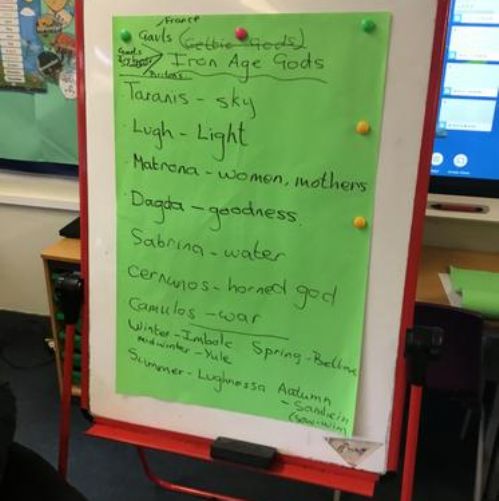 France
Gauls (Celtic Gods)
Iron Age Gods
Taranis - sky
Lugh - Light
Matrona - women, mothers
Dagda - goodness.
Sabrina - water
Cernunos - horned god
Camulos - war
Winter - Imbolc Spring - 
Midwinter - Yule
Summer - Lughnassa Autumn
- Samhein
(Sow-wim